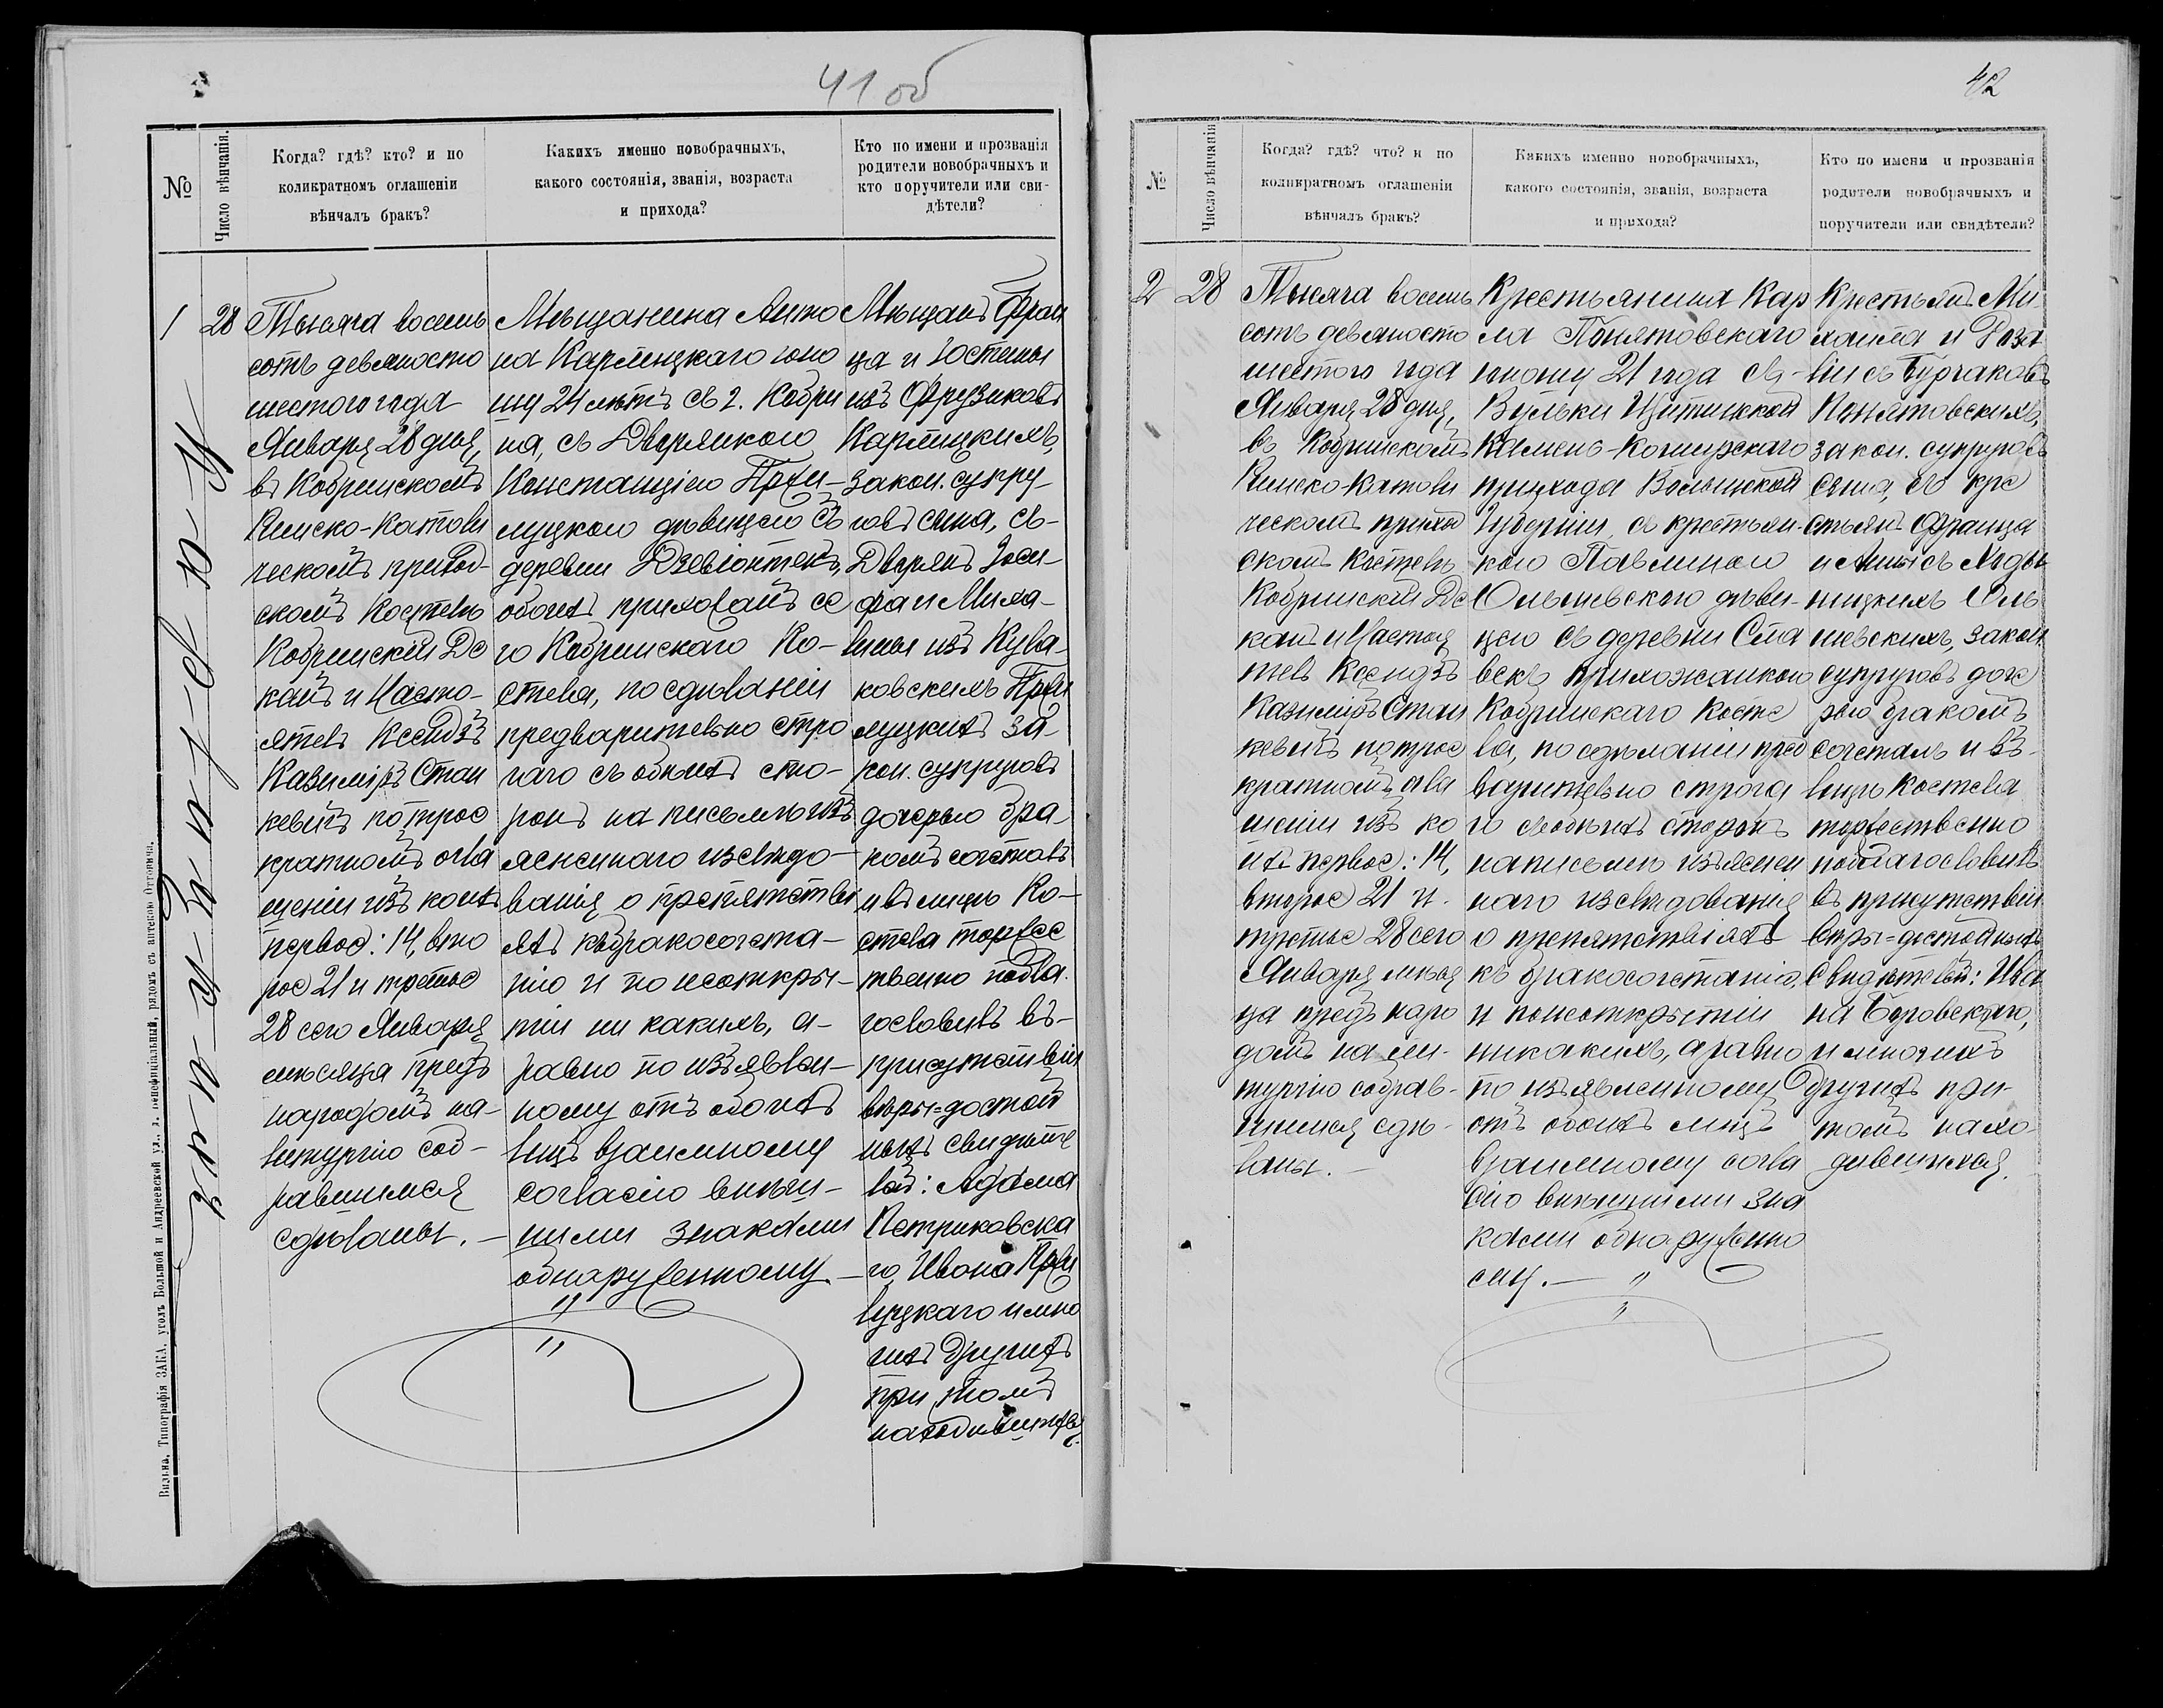 41 об
№
Число вѣнчанія.
Когда? гдѣ? кто? и по
коликратномъ оглашеніи
вѣнчалъ бракъ?
Какихъ именно новобрачныхъ,
какого состоянія, званія, возраста
и прихода?
Кто по имени и прозванія
родители новобрачныхъ и
кто поручители или сви-
дѣтели?
1
28
Тысяча восемь
сотъ девяносто
шестого года
Января 28 дня,
въ Кобринскомъ
Римско-Катали
ческомъ приход-
скомъ Костелѣ
Кобринскій Де
канъ и Насто-
ятель Ксендзъ
Казиміръ Стан
кевичъ по трое
кратномъ огла
шеніи изъ коихъ
первое: 14, вто
рое 21 и третье
28 сего Января
мѣсяца предъ
народомъ на-
литургію соб-
равшимся
сдѣланы. —
Мѣщанина Анто
на Карпицкаго юно
шу 24 лѣтъ съ г. Кобри
на, съ Дворянкою
Констанціею Прж-
луцкою дѣвицею съ
деревни
обоихъ прихожанъ се
го Кобринскаго Ко-
стела, по сдѣланіи
предварительно стро
гаго съ обѣихъ сто-
ронъ на письмѣ изъ
ясненнаго изслѣдо-
ванія о препятстві
яхъ къ бракосочета-
нію и по неоткры-
тіи ни какихъ, а-
равно по изъявлен-
ному отъ обоихъ
лицъ взаимному
согласію внѣш-
ними знаками
обнаруженному —
Мѣщанъ Фран
ца и Юстины
изъ Фрузиковъ
Карпицкихъ,
закон. супру-
говъ сына, съ-
Дворянъ Іоси-
фа и Миха-
лины изъ Кула-
ковскихъ
луцкихъ за-
кон. супруговъ
дочерью бра-
комъ сочеталъ
и въ лицѣ Ко-
стела торжес
твенно побла-
гословилъ въ-
присутствіи
вѣры=достой
ныхъ свидѣте
лей: Адама
Петриковска
го, Ивона
луцкаго и мно
гихъ другихъ
при томъ
находившихся.
Вильна, Типографія ЗАКА, уголъ Большой и Андреевской ул., д. Бенефиціальный, рядомъ съ аптекою Оттовича.
42
№
Число вѣнчанія
Когда? гдѣ? что? и по
коликратномъ оглашеніи
вѣнчалъ бракъ?
Какихъ именно новобрачныхъ,
какого состоянія, званія, возраста
и прихода?
Кто по имени и прозванія
родители новобрачныхъ и
поручители или свидѣтели?
2
28
Тысяча восемь
сотъ девяносто
шестого года
Января 28 дня,
въ Кобринскомъ
Римско-Катали
ческомъ приход
скомъ Костелѣ
Кобринскій Де
канъ и Настоя
тель Ксендзъ
Казиміръ Стан
кевичъ по трое
кратномъ огла
шеніи изъ ко
ихъ первое: 14,
второе 21 и
третье 28 сего
Января мѣся
ца предъ наро
домъ на ли-
тургію собрав-
шимся сдѣ-
ланы. —
Крестьянина Кар
ла Понятовскаго
юношу 21 года съ-
Вульки Щитинской
Камень-Коширскаго
прихода Волынской
Губерніи, съ крестьян-
кою Павлиною
Ольшевскою дѣви-
цею съ деревни Сла
векъ прихожанкою
Кобринскаго Косте
ла, по сдѣланіи пред
варительно строга
го съ обѣихъ сторонъ
на письмѣ изъяснен
наго изслѣдованія
о препятствіяхъ
къ бракосочетанію,
и по неоткрытіи
никакихъ, а равно
по изъявленному
отъ обоихъ лицъ
взаимному согла
сію внѣшними зна
ками обнаруженно
му. —
Крестьянъ Ми
хаила и Роза
ліи съ Бурчаковъ
Понятовскихъ,
закон. супруговъ
сына, съ кре
стьянъ Франца
и Анны съ
Оль
шевскихъ, закон
супруговъ доче
рью бракомъ
сочеталъ и въ-
лицѣ Костела
торжественно
поблагословилъ
въ присутствіи
вѣры=достойныхъ
Свидѣтелей: Ива
на Боровскаго,
и многихъ
другихъ при-
томъ нахо
дившихся.